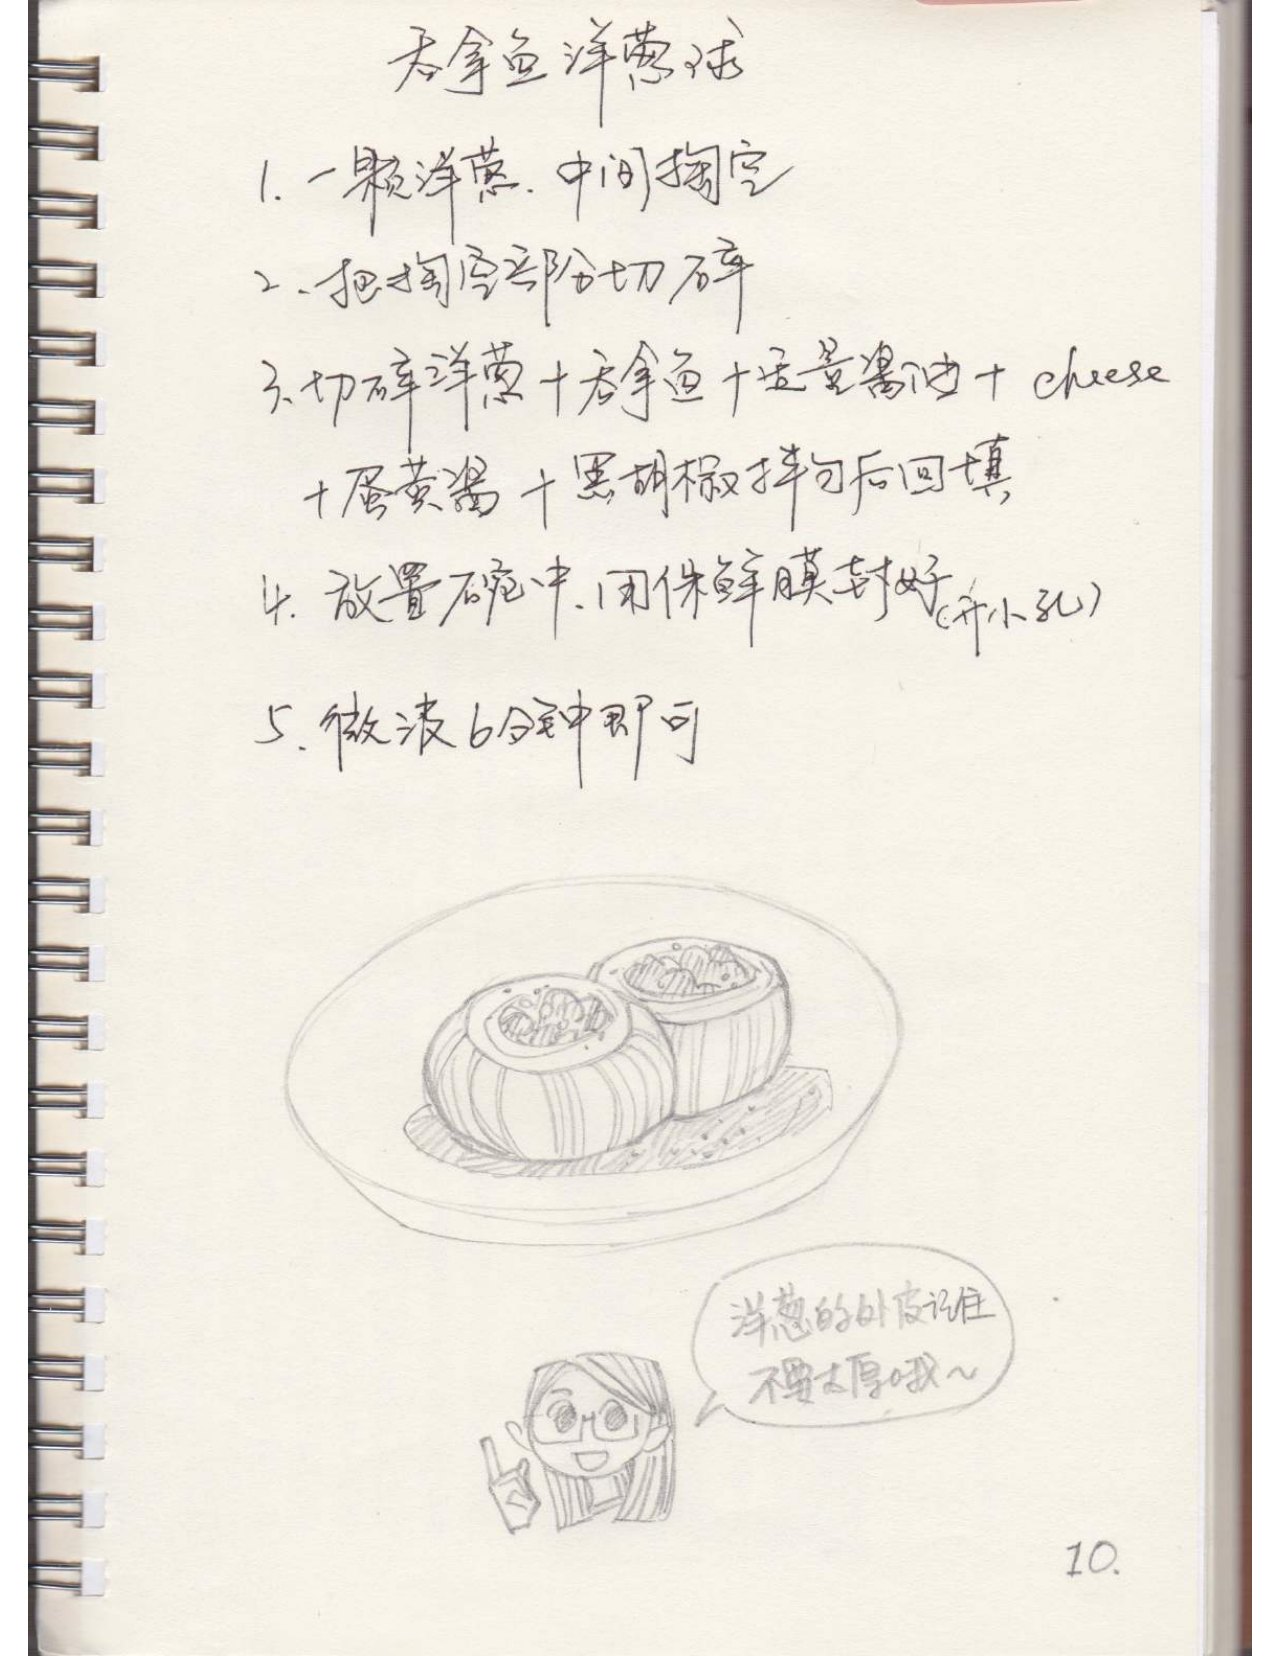 吞拿鱼洋葱球
1. 一颗洋葱. 中间掏空
2. 把掏空部分切碎
3. 切碎洋葱+吞拿鱼+适量酱油+ cheese
+蛋黄酱+黑胡椒拌匀后回填
4. 放置碗中. 用保鲜膜封好(开小孔)
5. 微波6分钟即可
洋葱的外皮记住
不要太厚哦~
10.